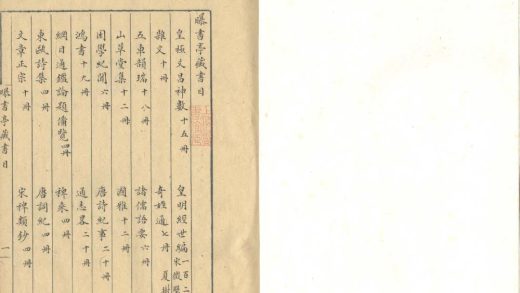 曝書亭藏書目
皇極文昌神數十五冊
皇明經世編一百二
雜文十冊
奇姓通七冊 夏樹
五車韻瑞十八冊
諸儒語要六冊
山草堂集十二冊
爾雅十二冊
困學紀聞六冊
唐詩紀事二十冊
鴻書十九冊
通志畧二十冊
綱目通鑑論題備覽四冊
稗乘四冊
東甌詩集四冊
唐詞紀四冊
文章正宗十冊
宋稗類鈔四冊
曝書亭藏書目
一